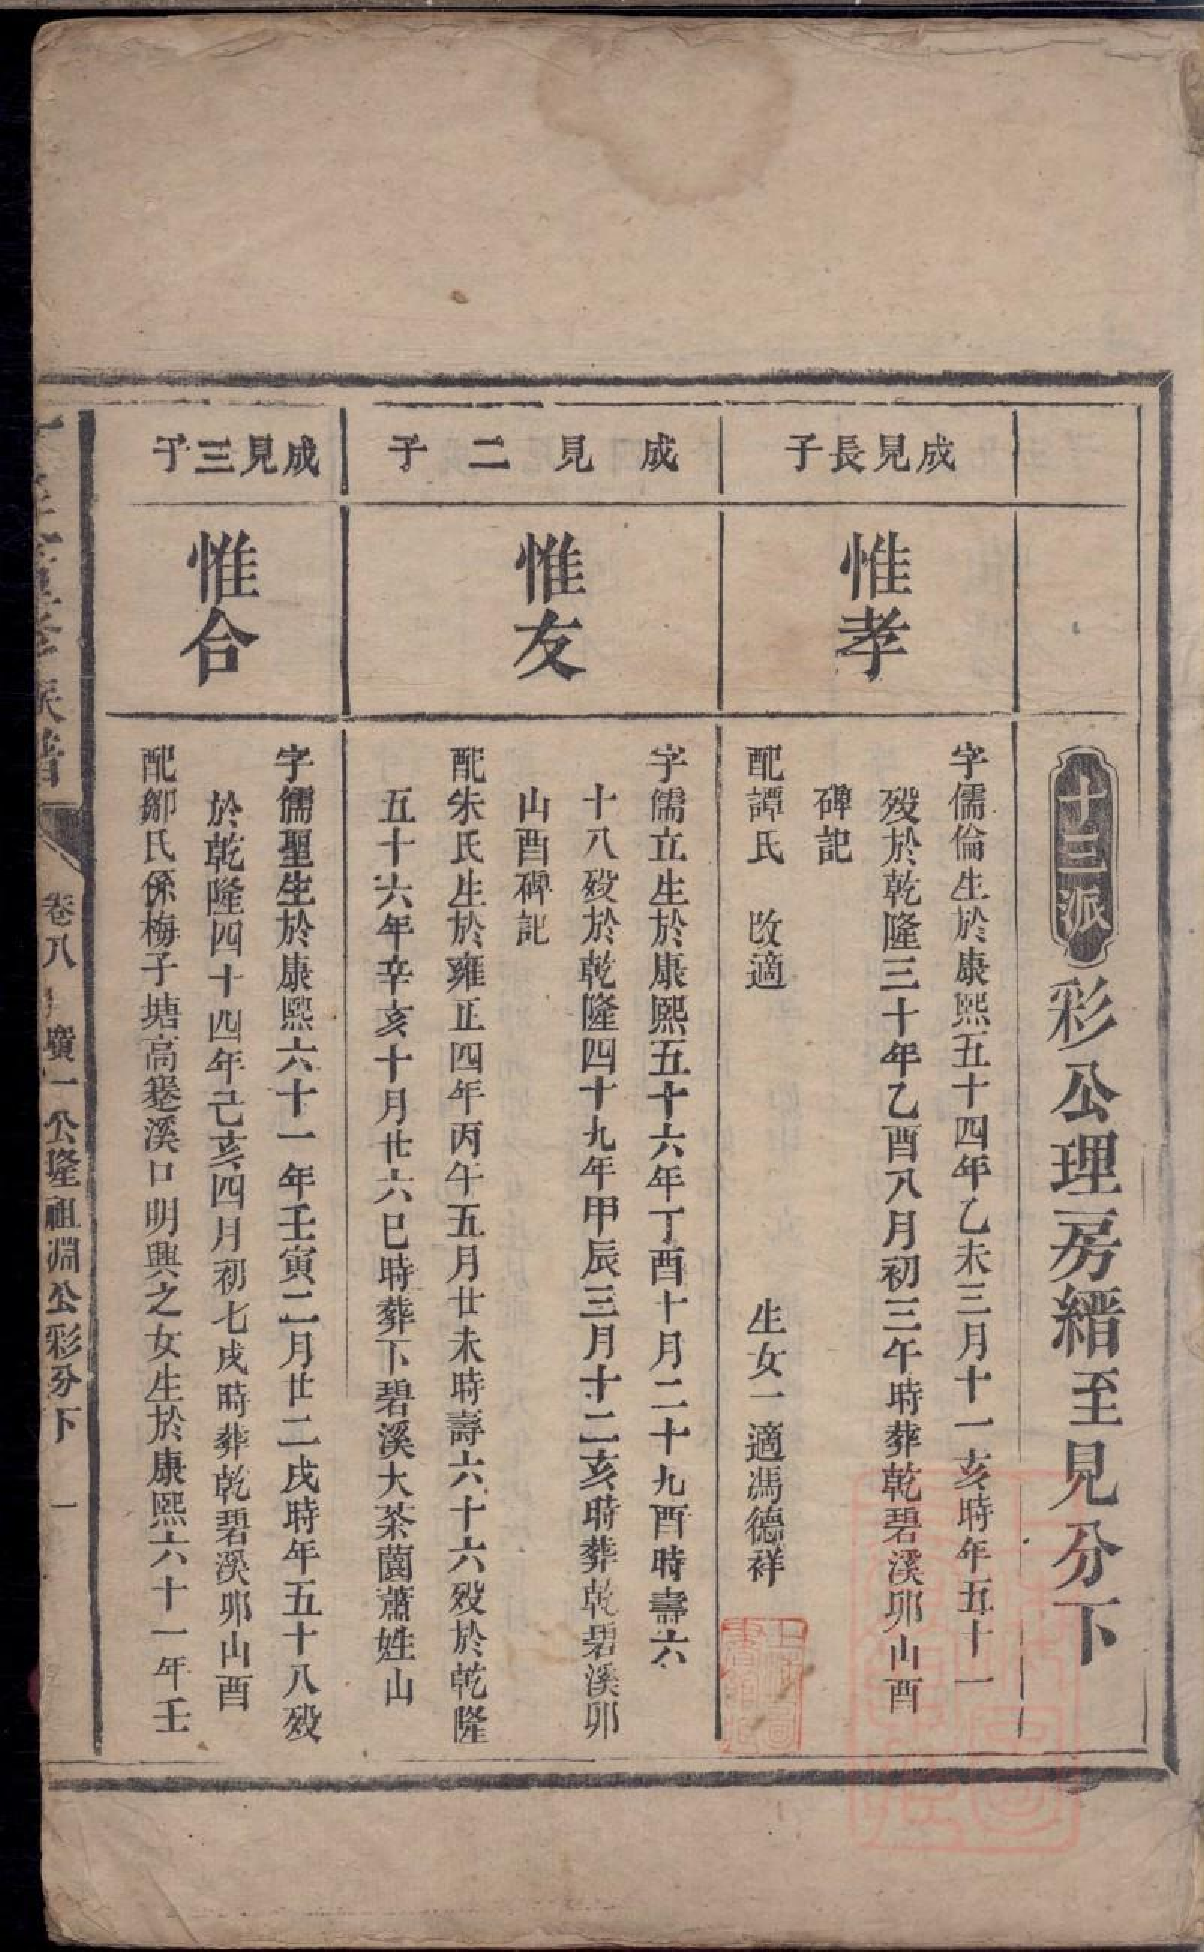 十三派彩公理房縉至見分下
成見長子
惟孝
字儒倫生於康熙五十四年乙未三月十一亥時年五十一
歿於乾隆三十年乙酉八月初三午時葬乾碧溪卯山酉
碑記
配譚氏 改適 生女一適馮德祥
成見二子
惟友
字儒立生於康熙五十六年丁酉十月二十九酉時壽六
十八歿於乾隆四十九年甲辰三月十二亥時葬乾碧溪卯
山酉碑記
配朱氏生於雍正四年丙午五月廿未時壽六十六歿於乾隆
五十六年辛亥十月廿六巳時葬下碧溪大茶園蕭姓山
成見三子
惟合
字儒聖生於康熙六十一年壬寅二月廿二戌時年五十八歿
於乾隆四十四年己亥四月初七戌時葬乾碧溪卯山酉
配鄒氏係梅子塘高蹇溪口明興之女生於康熙六十一年壬
族譜 卷八 廣一公隆祖淵公彩分下 一